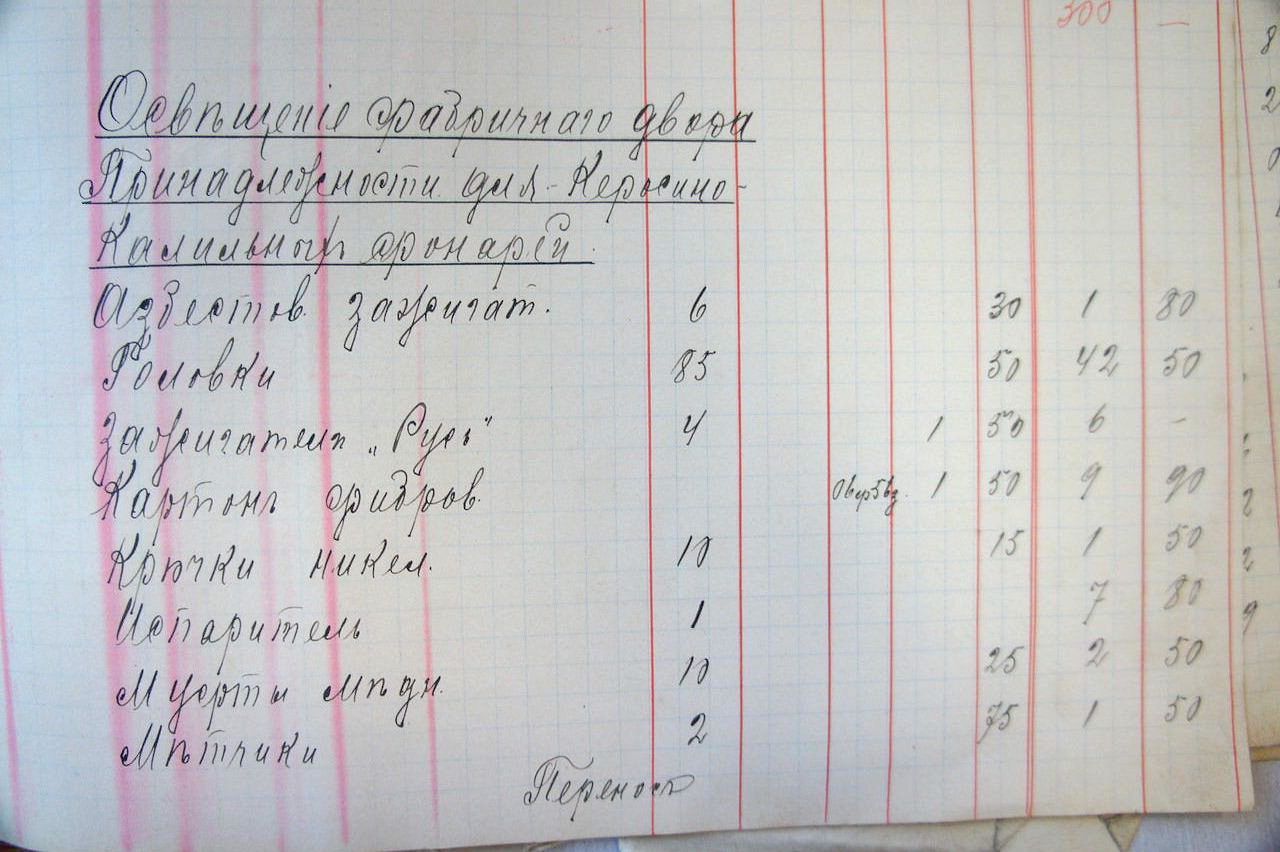 300 —
Освѣщеніе фабричнаго двора
Принадлежности для Керосино-
Калильныхъ фонарей
Азбестов. зажигат. 6 30 1 80
Головки 85 50 42 50
Зажигатели „Русь" 4 1 50 6 -
Картонъ фибров. 1 50 9 90
Крючки никел. 10 15 1 50
Испаритель 1 7 80
Муфты мѣдн. 10 25 2 50
Мѣтчики 2 75 1 50
Переносъ